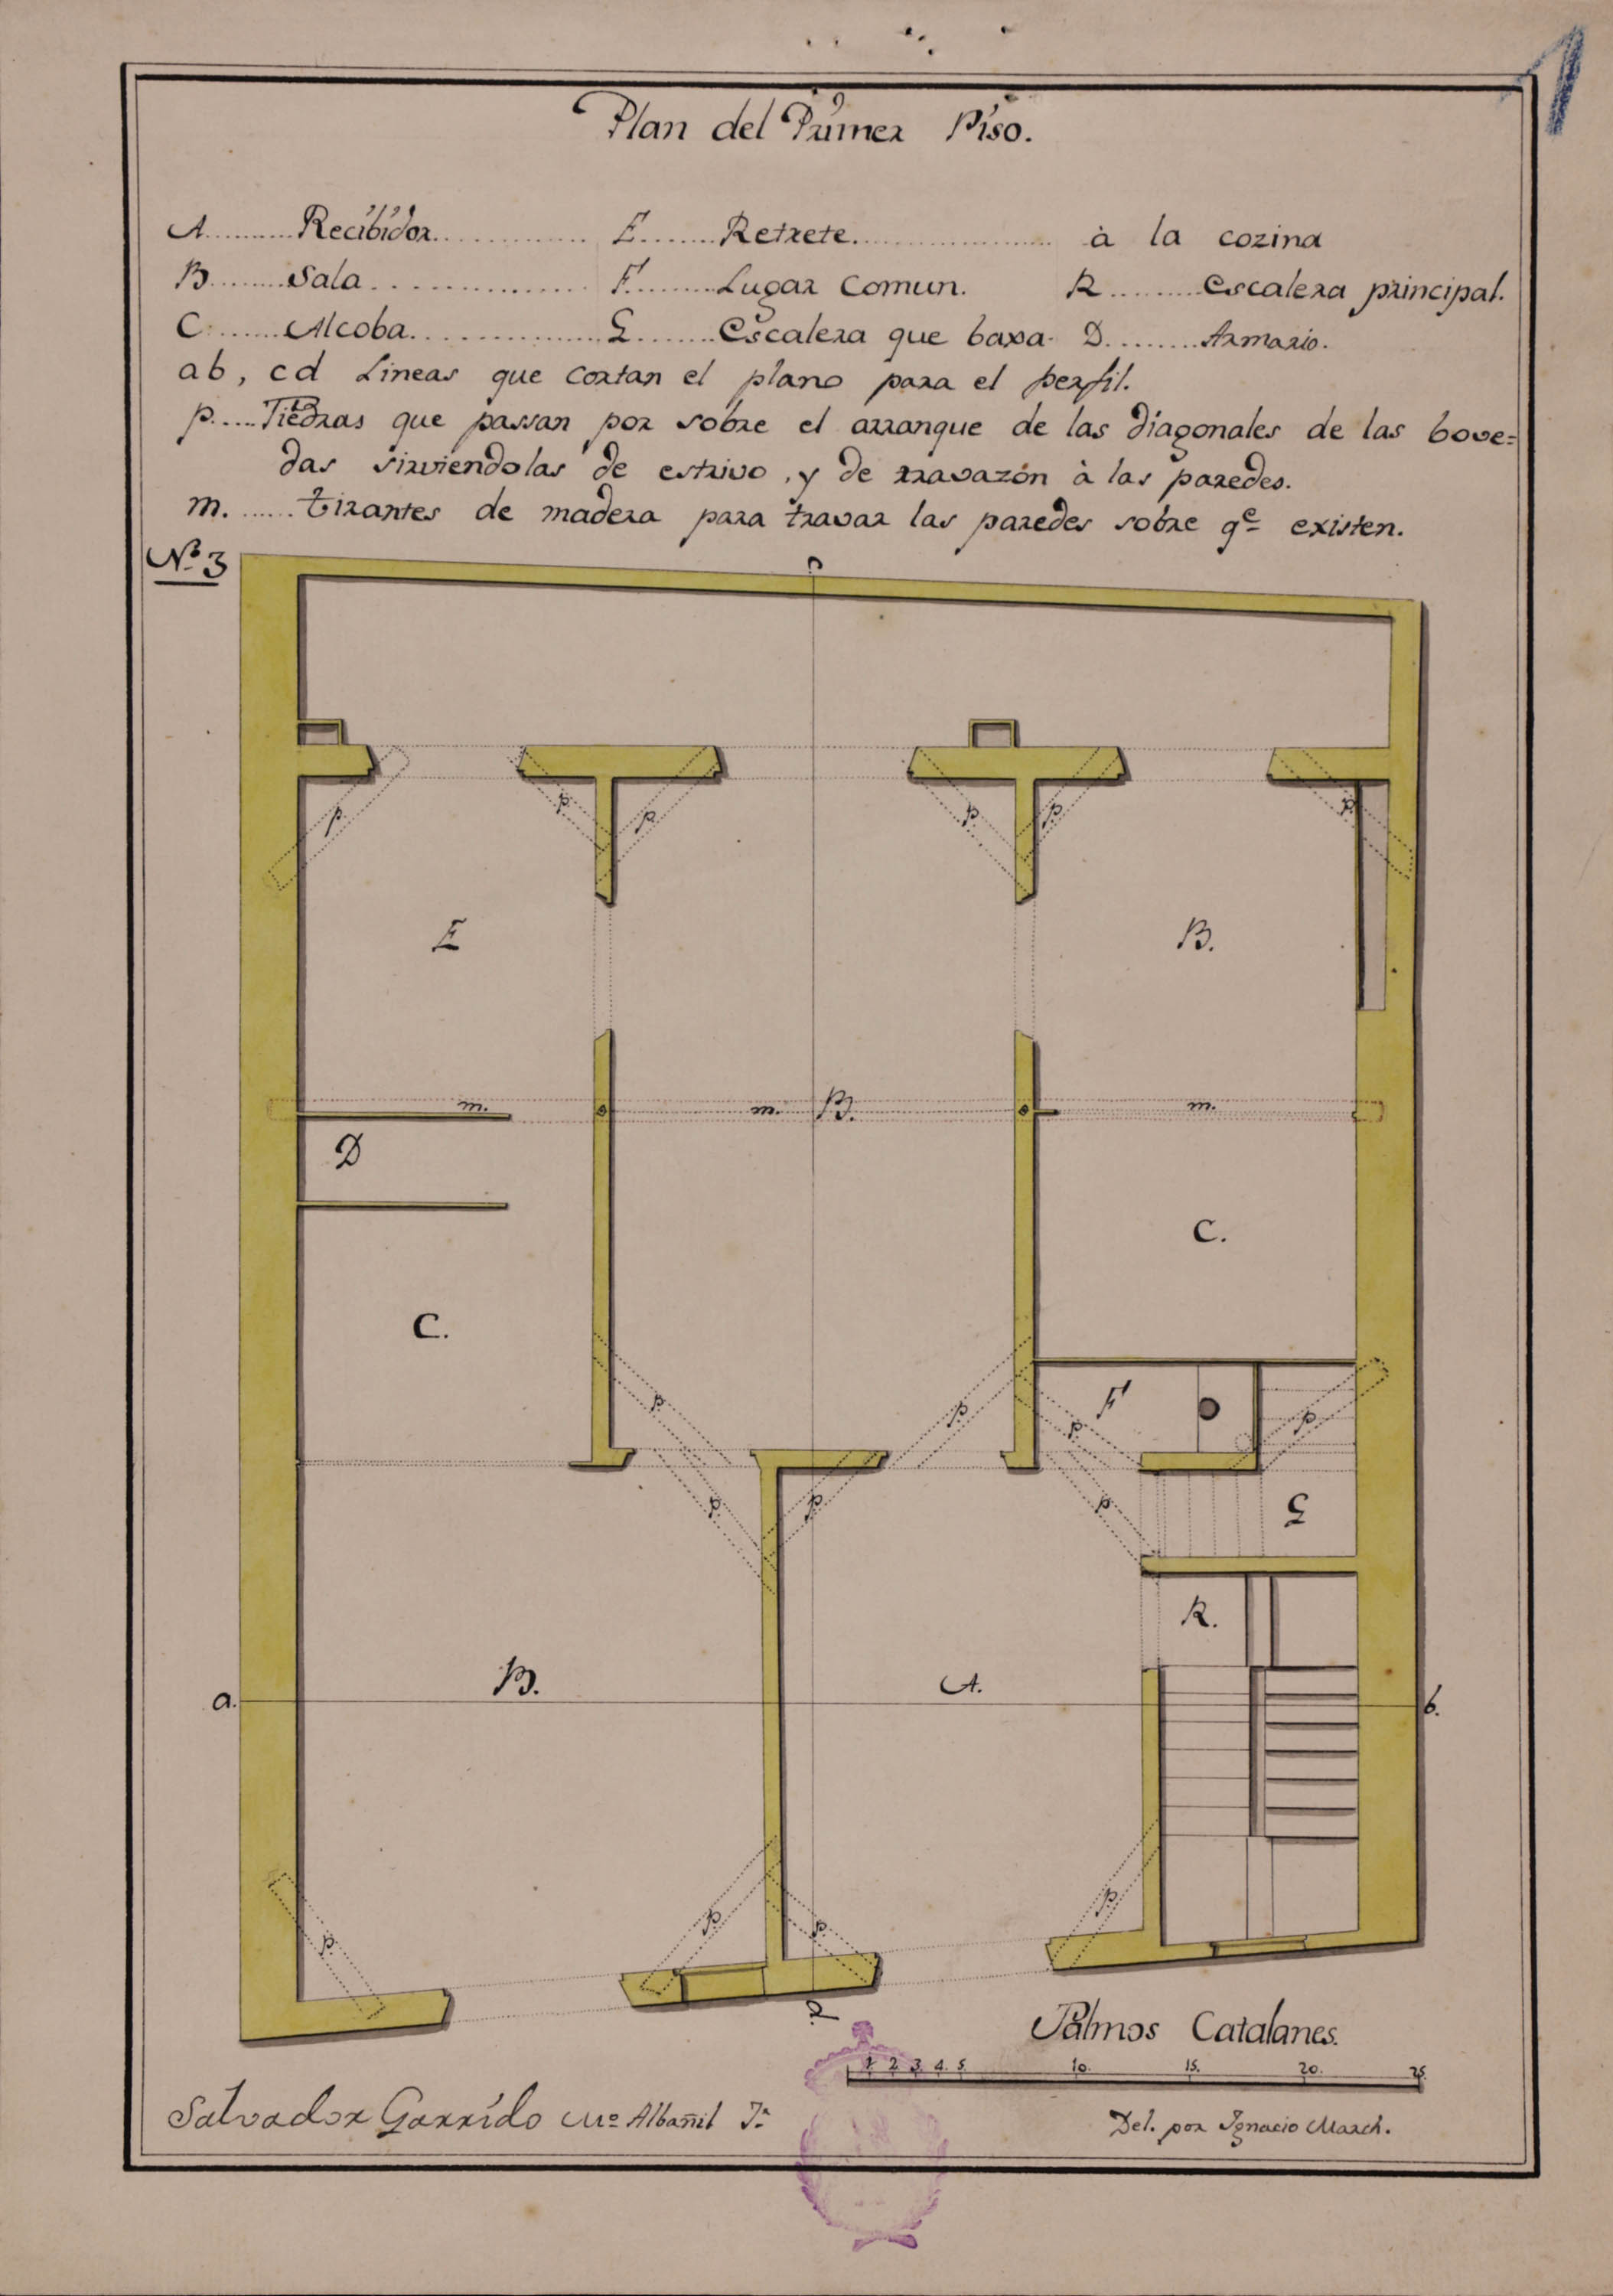 1
Plan del Primer Piso.
A..........Recibidor................ E........Retrete.................... à la cozina
B........Sala.................. F.........Lugar Comun. R.........Escalera principal.
C.......Alcoba................. G........Escalera que baxa. D.........Armario.
ab, cd Lineas que cortan el plano para el perfil.
p.....Piedras que passan por sobre el arranque de las diagonales de las bove=
das sirviendolas de estrivo, y de travazón à las paredes.
m.......tirantes de madera para travar las paredes sobre qe existen.
No. 3
c
p. p. p. p. p. p.
E B.
m. m. B. m.
D
C.
C.
p. p. p. F p.
p. p. p. G
R.
a. B. A. b.
p. p. p. p.
d.
Palmos Catalanes.
1 2 3 4. 5. 10. 15. 20. 25.
Salvador Garrido Mo Albañil Ja.
Del. por Ignacio March.